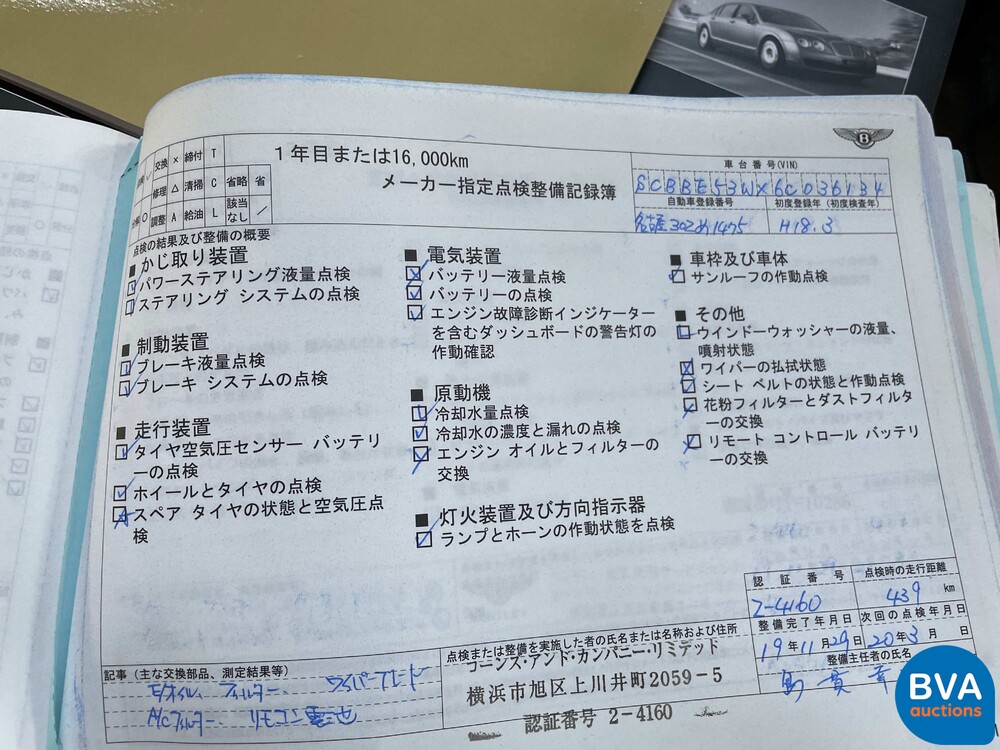 交換 × 締付 T
修理 △ 清掃 C 省略 省
調整 A 給油 L 該当なし ／
1年目または16,000km
メーカー指定点検整備記録簿
B
車台番号(VIN)
SCBBE53WX6C036134
自動車登録番号 初度登録年(初度検査年)
名古屋302 1475 H18.3
点検の結果及び整備の概要
■ かじ取り装置
パワーステアリング液量点検
ステアリング システムの点検
■ 制動装置
ブレーキ液量点検
ブレーキ システムの点検
■ 走行装置
タイヤ空気圧センサー バッテリ
ーの点検
ホイールとタイヤの点検
スペア タイヤの状態と空気圧点
検
■ 電気装置
バッテリー液量点検
バッテリーの点検
エンジン故障診断インジケーター
を含むダッシュボードの警告灯の
作動確認
■ 原動機
冷却水量点検
冷却水の濃度と漏れの点検
エンジン オイルとフィルターの
交換
■ 灯火装置及び方向指示器
ランプとホーンの作動状態を点検
■ 車枠及び車体
サンルーフの作動点検
■ その他
ウインドーウォッシャーの液量、
噴射状態
ワイパーの払拭状態
シート ベルトの状態と作動点検
花粉フィルターとダストフィルタ
ーの交換
リモート コントロール バッテリ
ーの交換
認証番号 点検時の走行距離
2-4160 439 km
整備完了年月日 次回の点検年月日
19年11月29日 20年3月 日
整備主任者の氏名
記事(主な交換部品、測定結果等)
E/オイル、フィルター、 ワイパーブレード
A/Cフィルター リモコン電池
点検または整備を実施した者の氏名または名称および住所
コーンズ・アンド・カンパニー・リミテッド
横浜市旭区上川井町2059-5
認証番号 2-4160
BVA
auctions